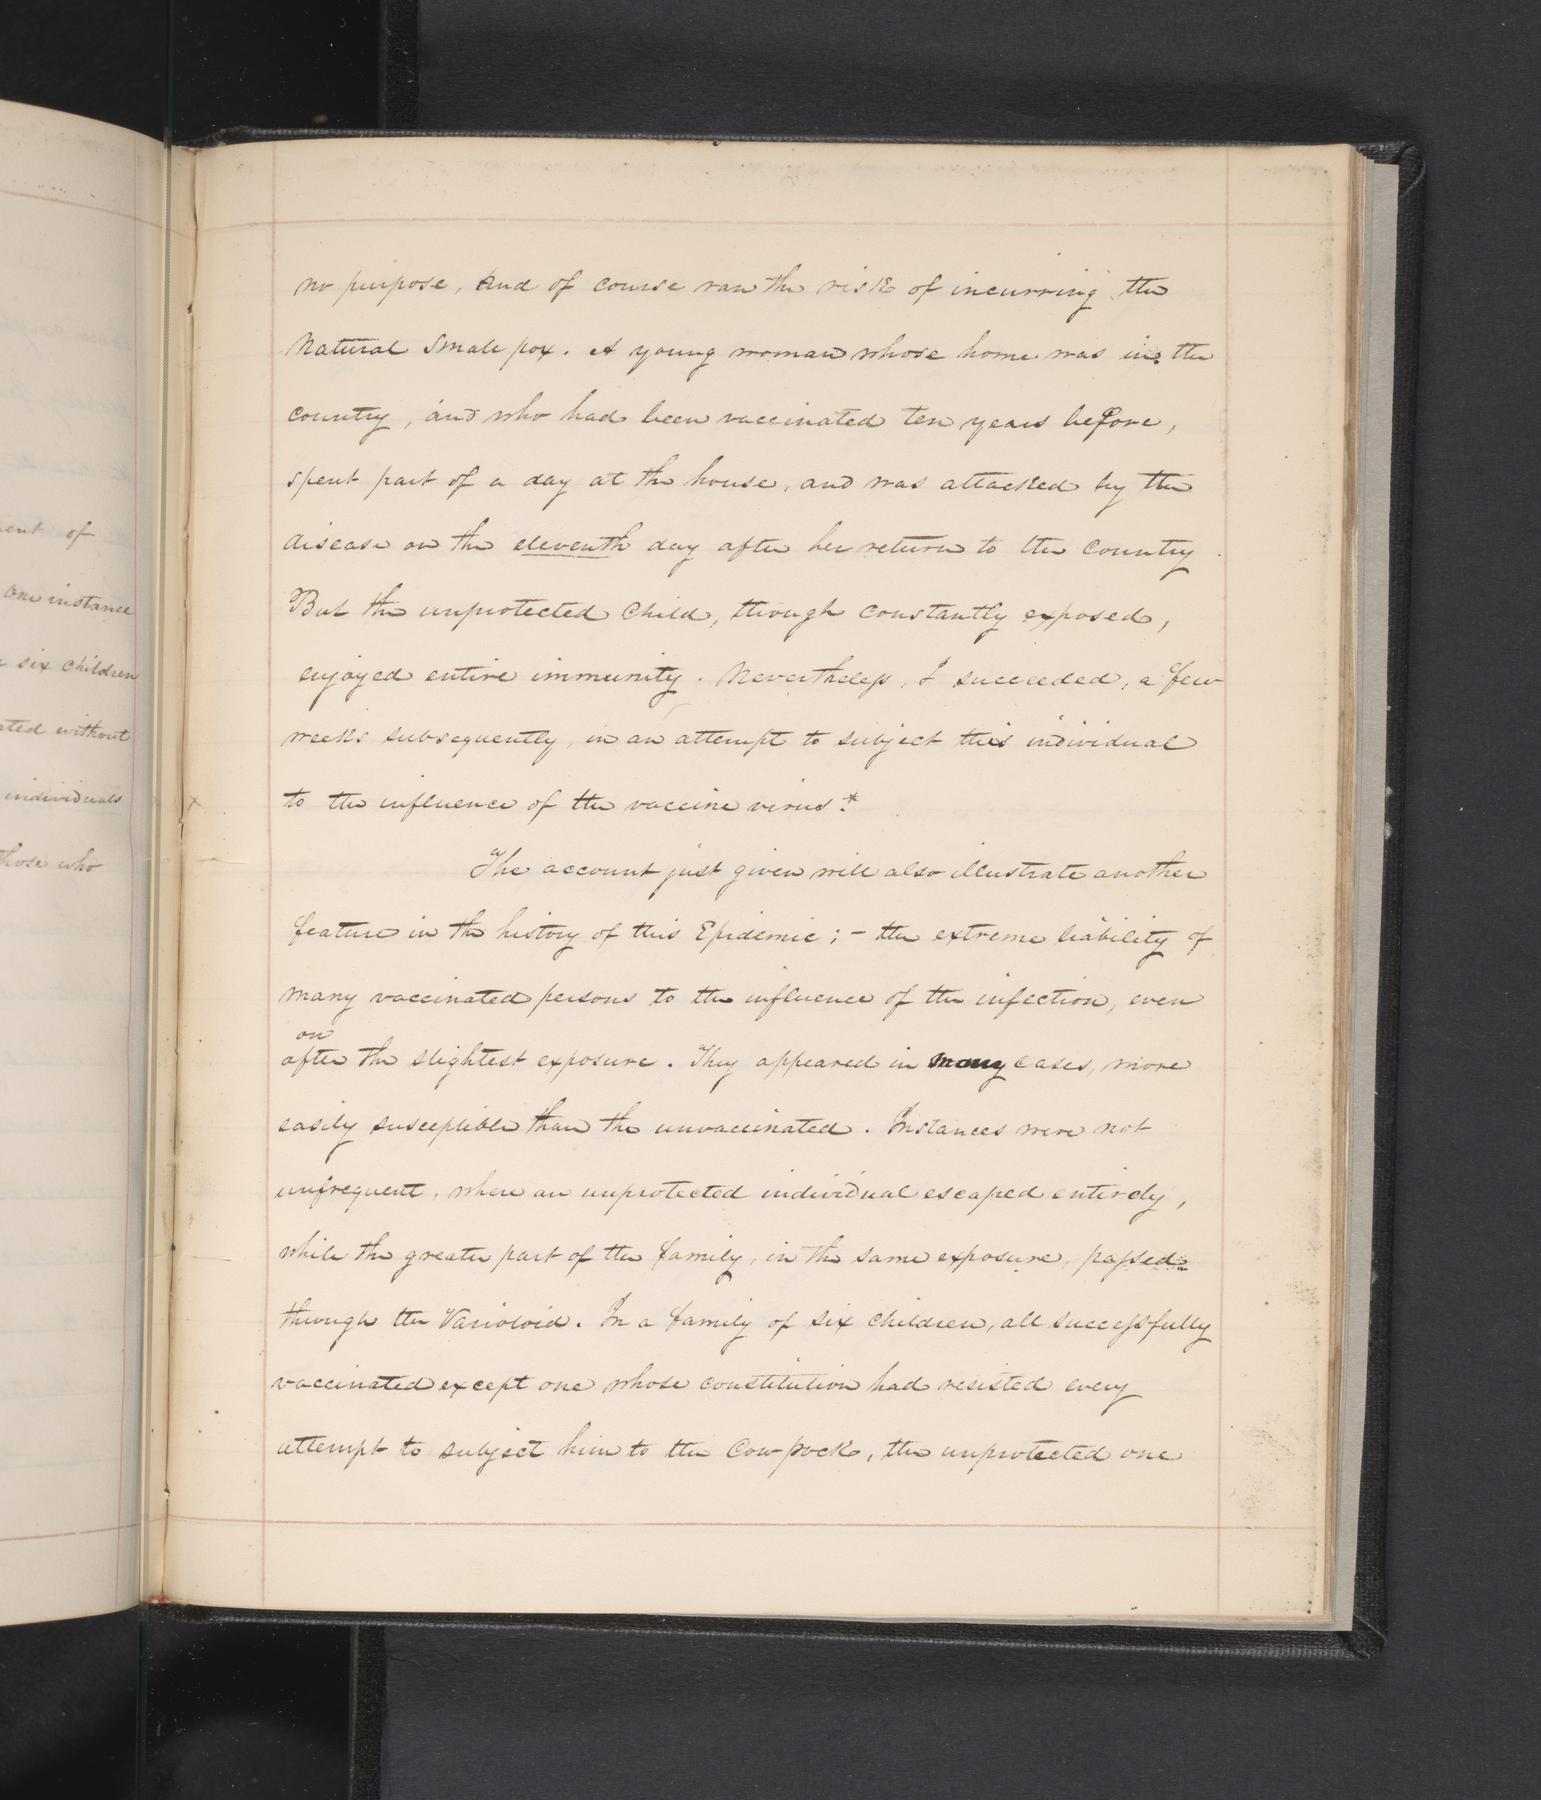 ent of
one instance
six children
ated without
individuals
those who
no purpose, and of course ran the risk of incurring the
natural small pox. A young woman whose home was in the
country, and who had been vaccinated ten years before,
spent part of a day at the house, and was attacked by the
disease on the eleventh day after her return to the country.
But the unprotected child, though constantly exposed,
enjoyed entire immunity. Nevertheless, I succeeded, a few
weeks subsequently, in an attempt to subject this individual
to the influence of the vaccine virus.*
The account just given will also illustrate another
feature in the history of this Epidemic; - the extreme liability of
many vaccinated persons to the influence of the infection, even
on
after the slightest exposure. They appeared in many cases, more
easily susceptible than the unvaccinated. Instances were not
unfrequent, where an unprotected individual escaped entirely,
while the greater part of the family, in the same exposure, passed
through the Varioloid. In a family of six children, all successfully
vaccinated except one whose constitution had resisted every
attempt to subject him to the Cow pock, the unprotected one